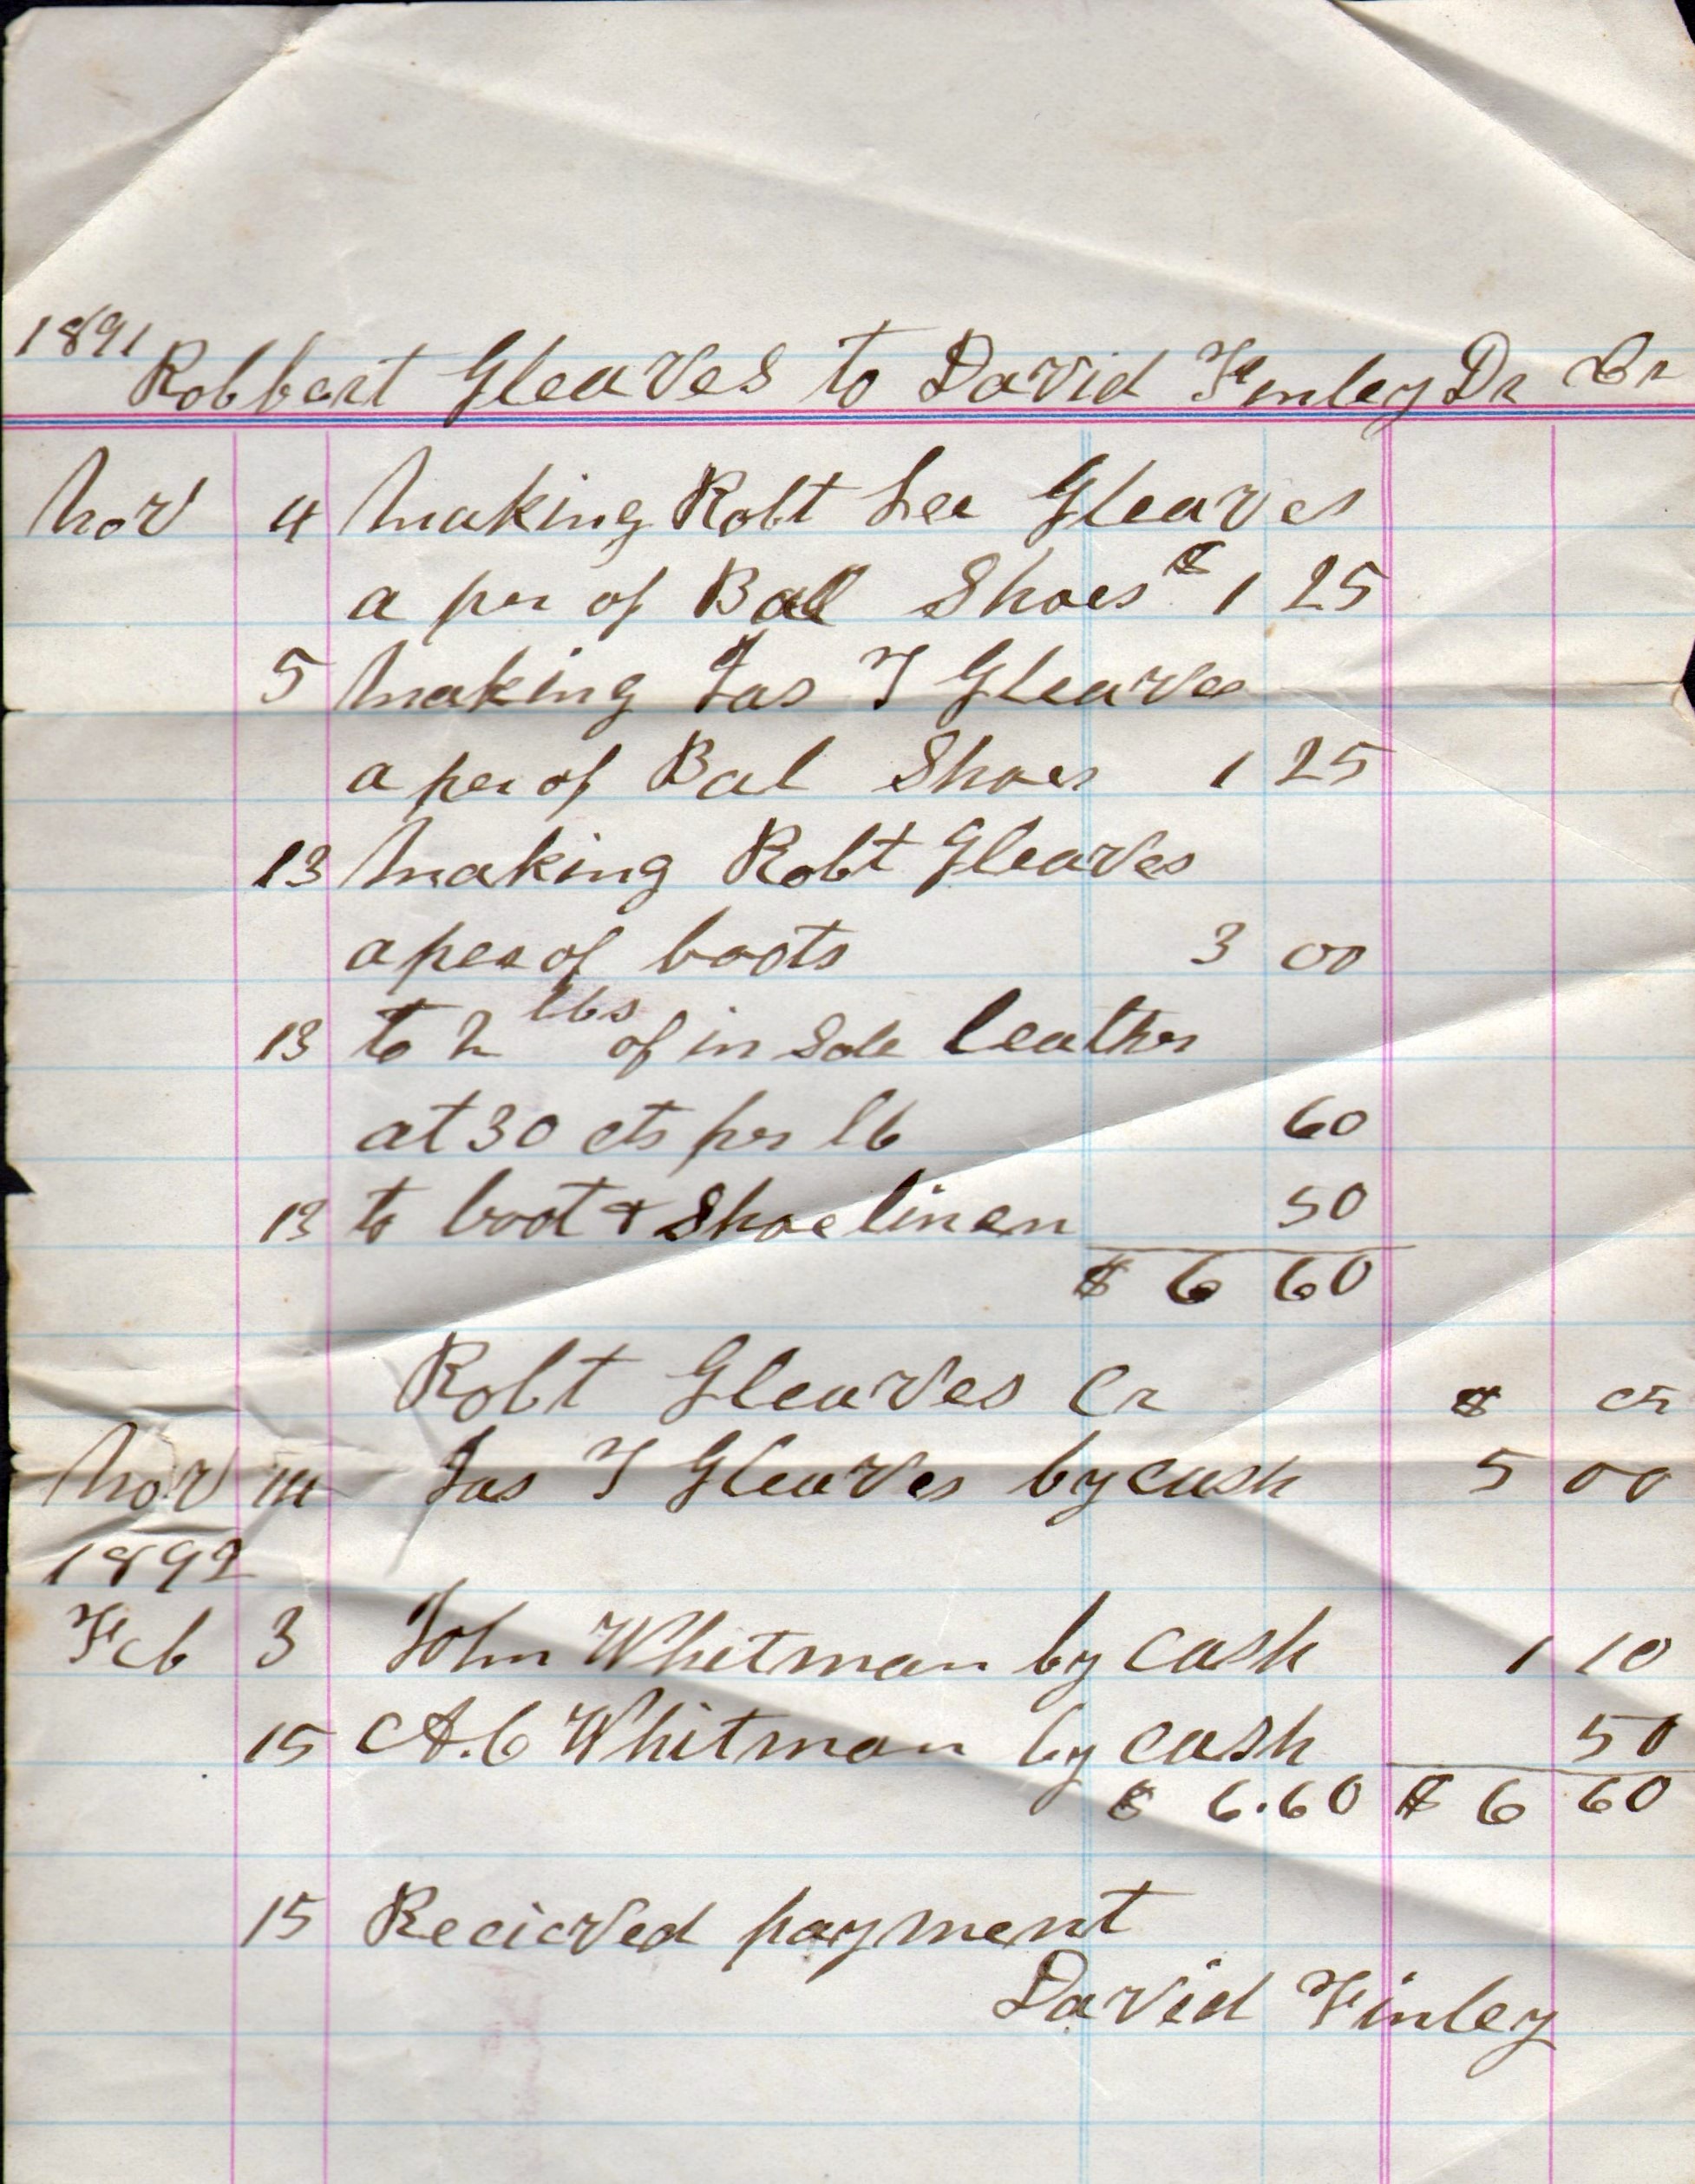 1891
Robbert Gleaves to David Finley Dr Cr
Nov 4 Making Robt Lee Gleaves
a per of Bal Shoes $ 1 25
5 Making Jas T Gleaves
a per of Bal Shoes 1 25
13 Making Robt Gleaves
a per of boots 3 00
13 to 2 lbs of in Sole leather
at 30 cts per lb 60
13 to boot & Shoe linen 50
$ 6 60
Robt Gleaves Cr $ cts
Nov 14 Jas T Gleaves by cash 5 00
1892
Feb 3 John Whitman by cash 1 10
15 A.C Whitman by cash 50
$ 6.60 $ 6 60
15 Recieved payment
David Finley